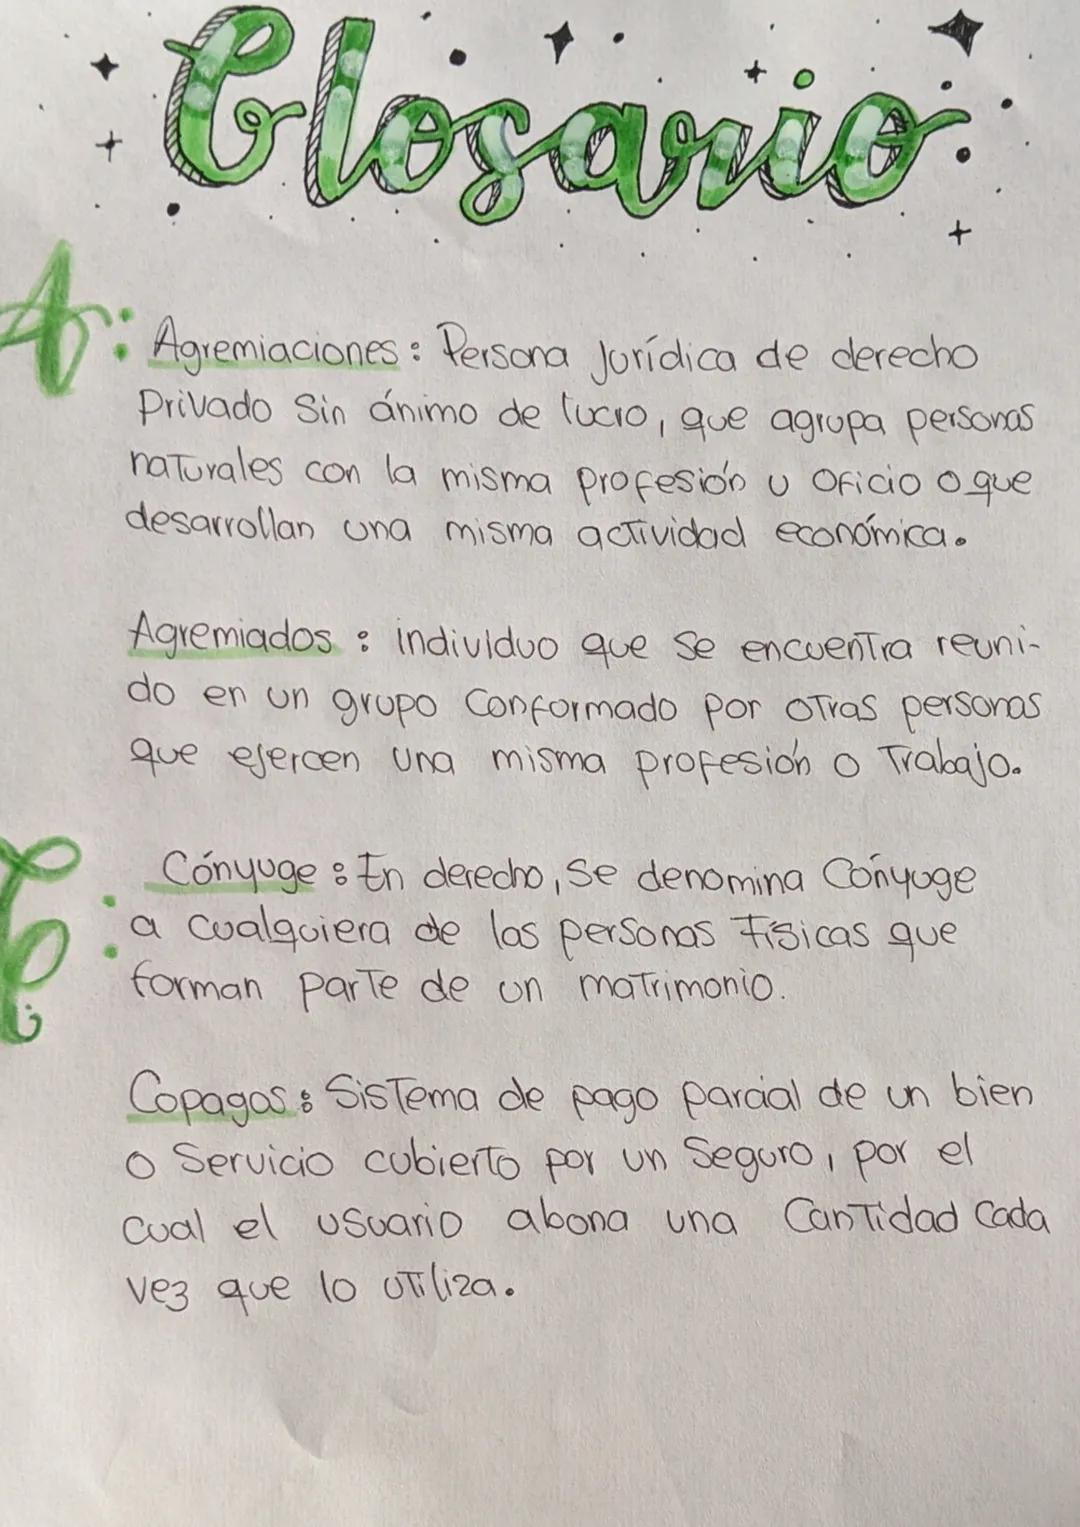 Glosario
A: Agremiaciones: Persona Jurídica de derecho
Privado Sin ánimo de lucro, que agrupa personas
naturales con la misma profesión u oficio o que
desarrollan una misma actividad económica.
Agremiados: individuo que se encuentra reuni-
do en un grupo Conformado por otras personas
que ejercen una misma profesión o Trabajo.
C: Cónyuge: En derecho, Se denomina Cónyuge
a cualquiera de las personas Físicas que
forman parte de un matrimonio.
Copagos: Sistema de pago parcial de un bien
o Servicio cubierto por un Seguro, por el
cual el usuario abona una Cantidad Cada
vez que lo utiliza.